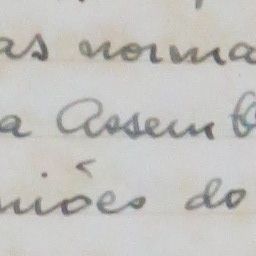 as norma
a Assemb
niões do